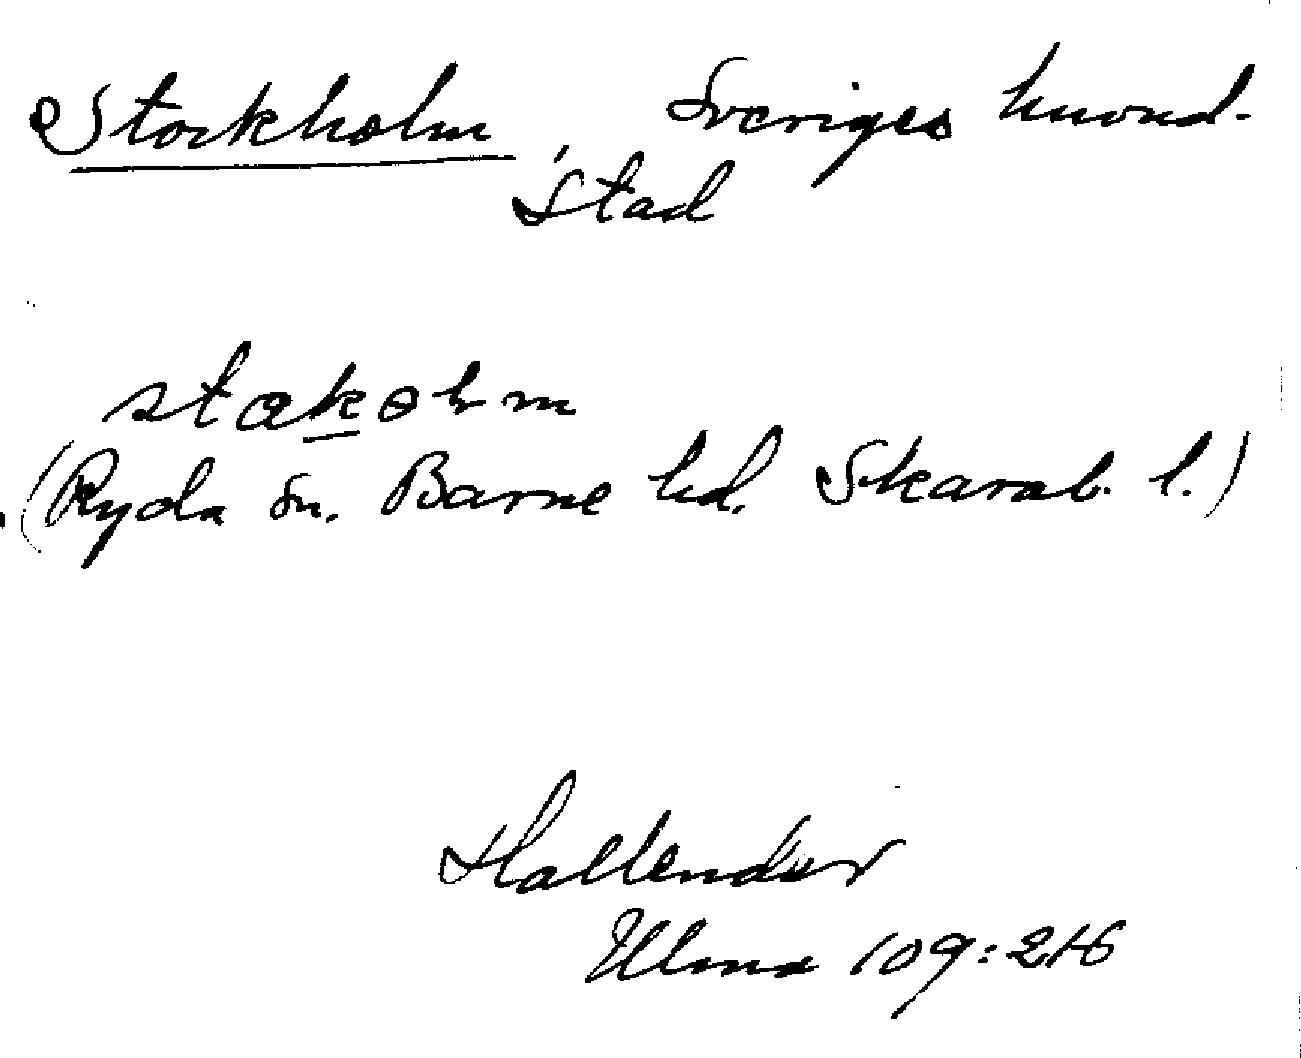 Stockholm, Sveriges huvud-
stad
stakolm
(Ryda sn. Barne hd. Skarab. l.)
Hallender
Ulma 109:216